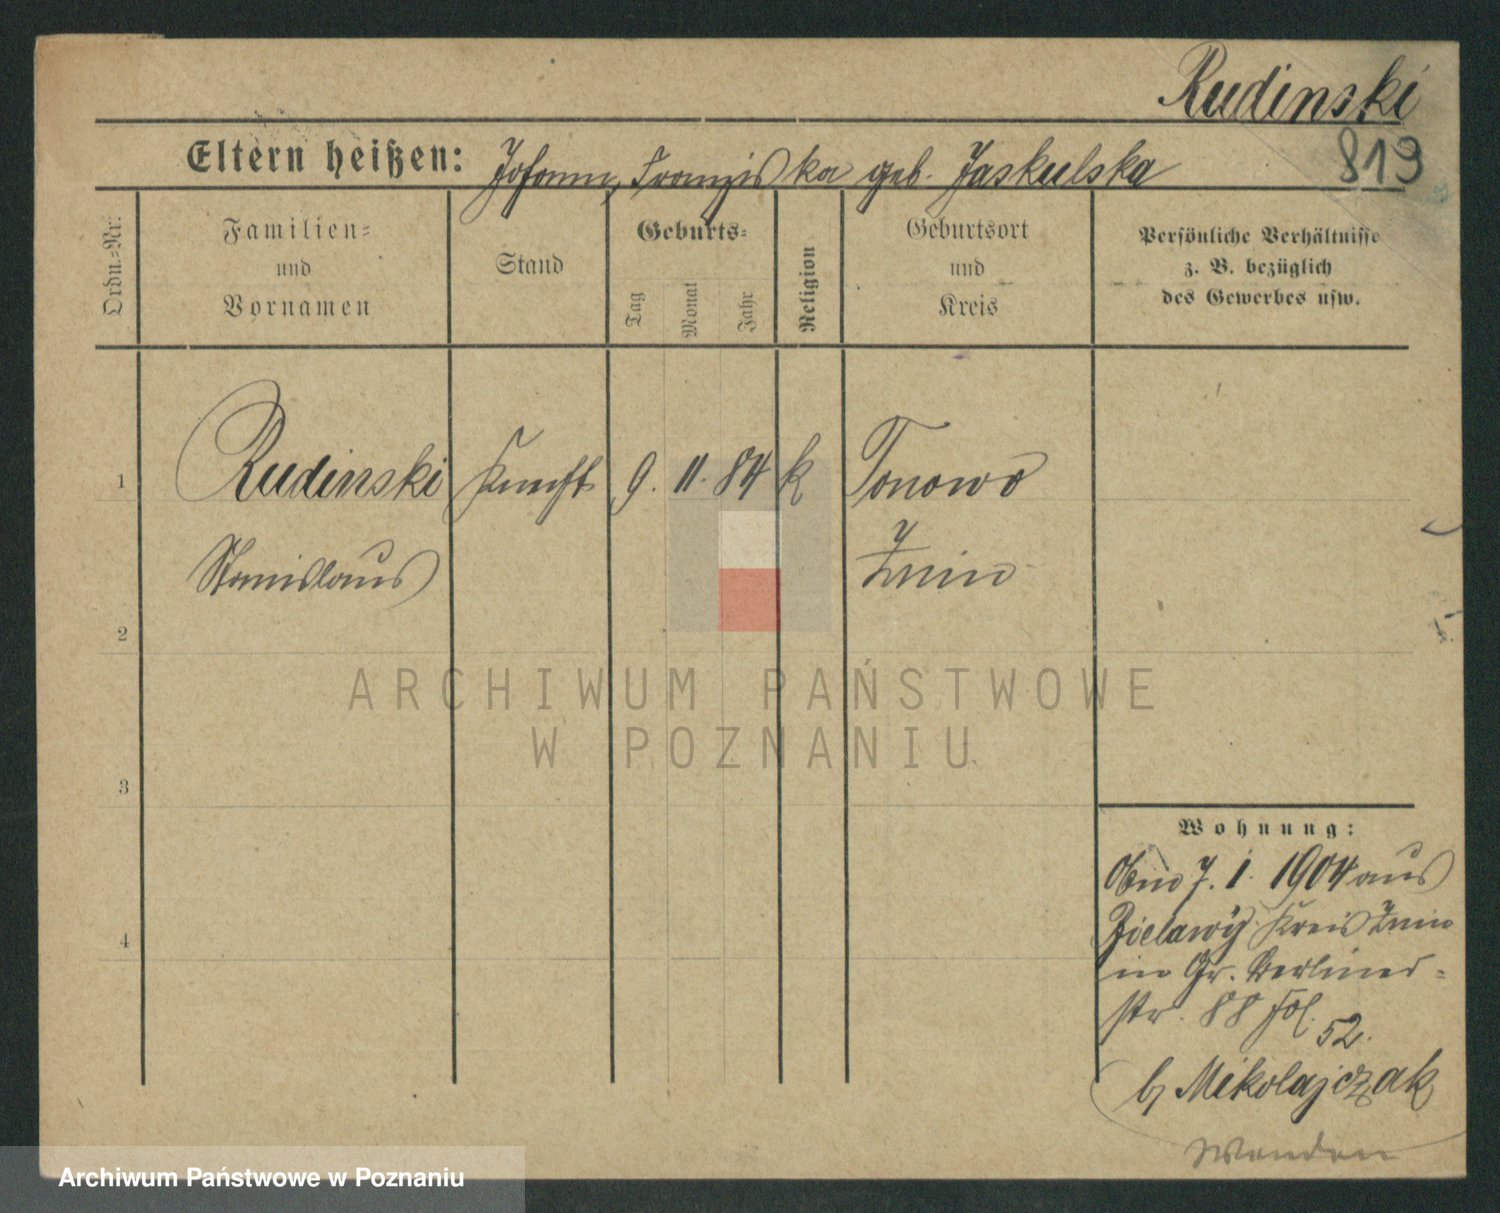 Rudinski
Eltern heißen: Johann, Franziska geb. Jaskulska
819
Ordn.-Nr.
Familien-
und
Vornamen
Stand
Geburts-
Tag
Monat
Jahr
Religion
Geburtsort
und
Kreis
Persönliche Verhältnisse
z. B. bezüglich
des Gewerbes usw.
1
Rudinski
9. 11. 84
k
Tonowo
Stanislaus
Znin
2
ARCHIWUM PAŃSTWOWE
W POZNANIU
3
Wohnung:
7. 1. 1904 aus
Bielawy Kreis Znin
in Gr. Berliner-
str. 88 Fol.
52.
b/ Mikolajczak
4
Wenden
Archiwum Państwowe w Poznaniu